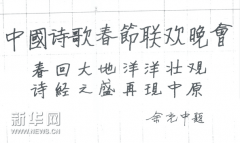 中國诗歌春節联欢晚會
春回大地洋洋壮观
诗经之盛再现中原
余光中题
新华网